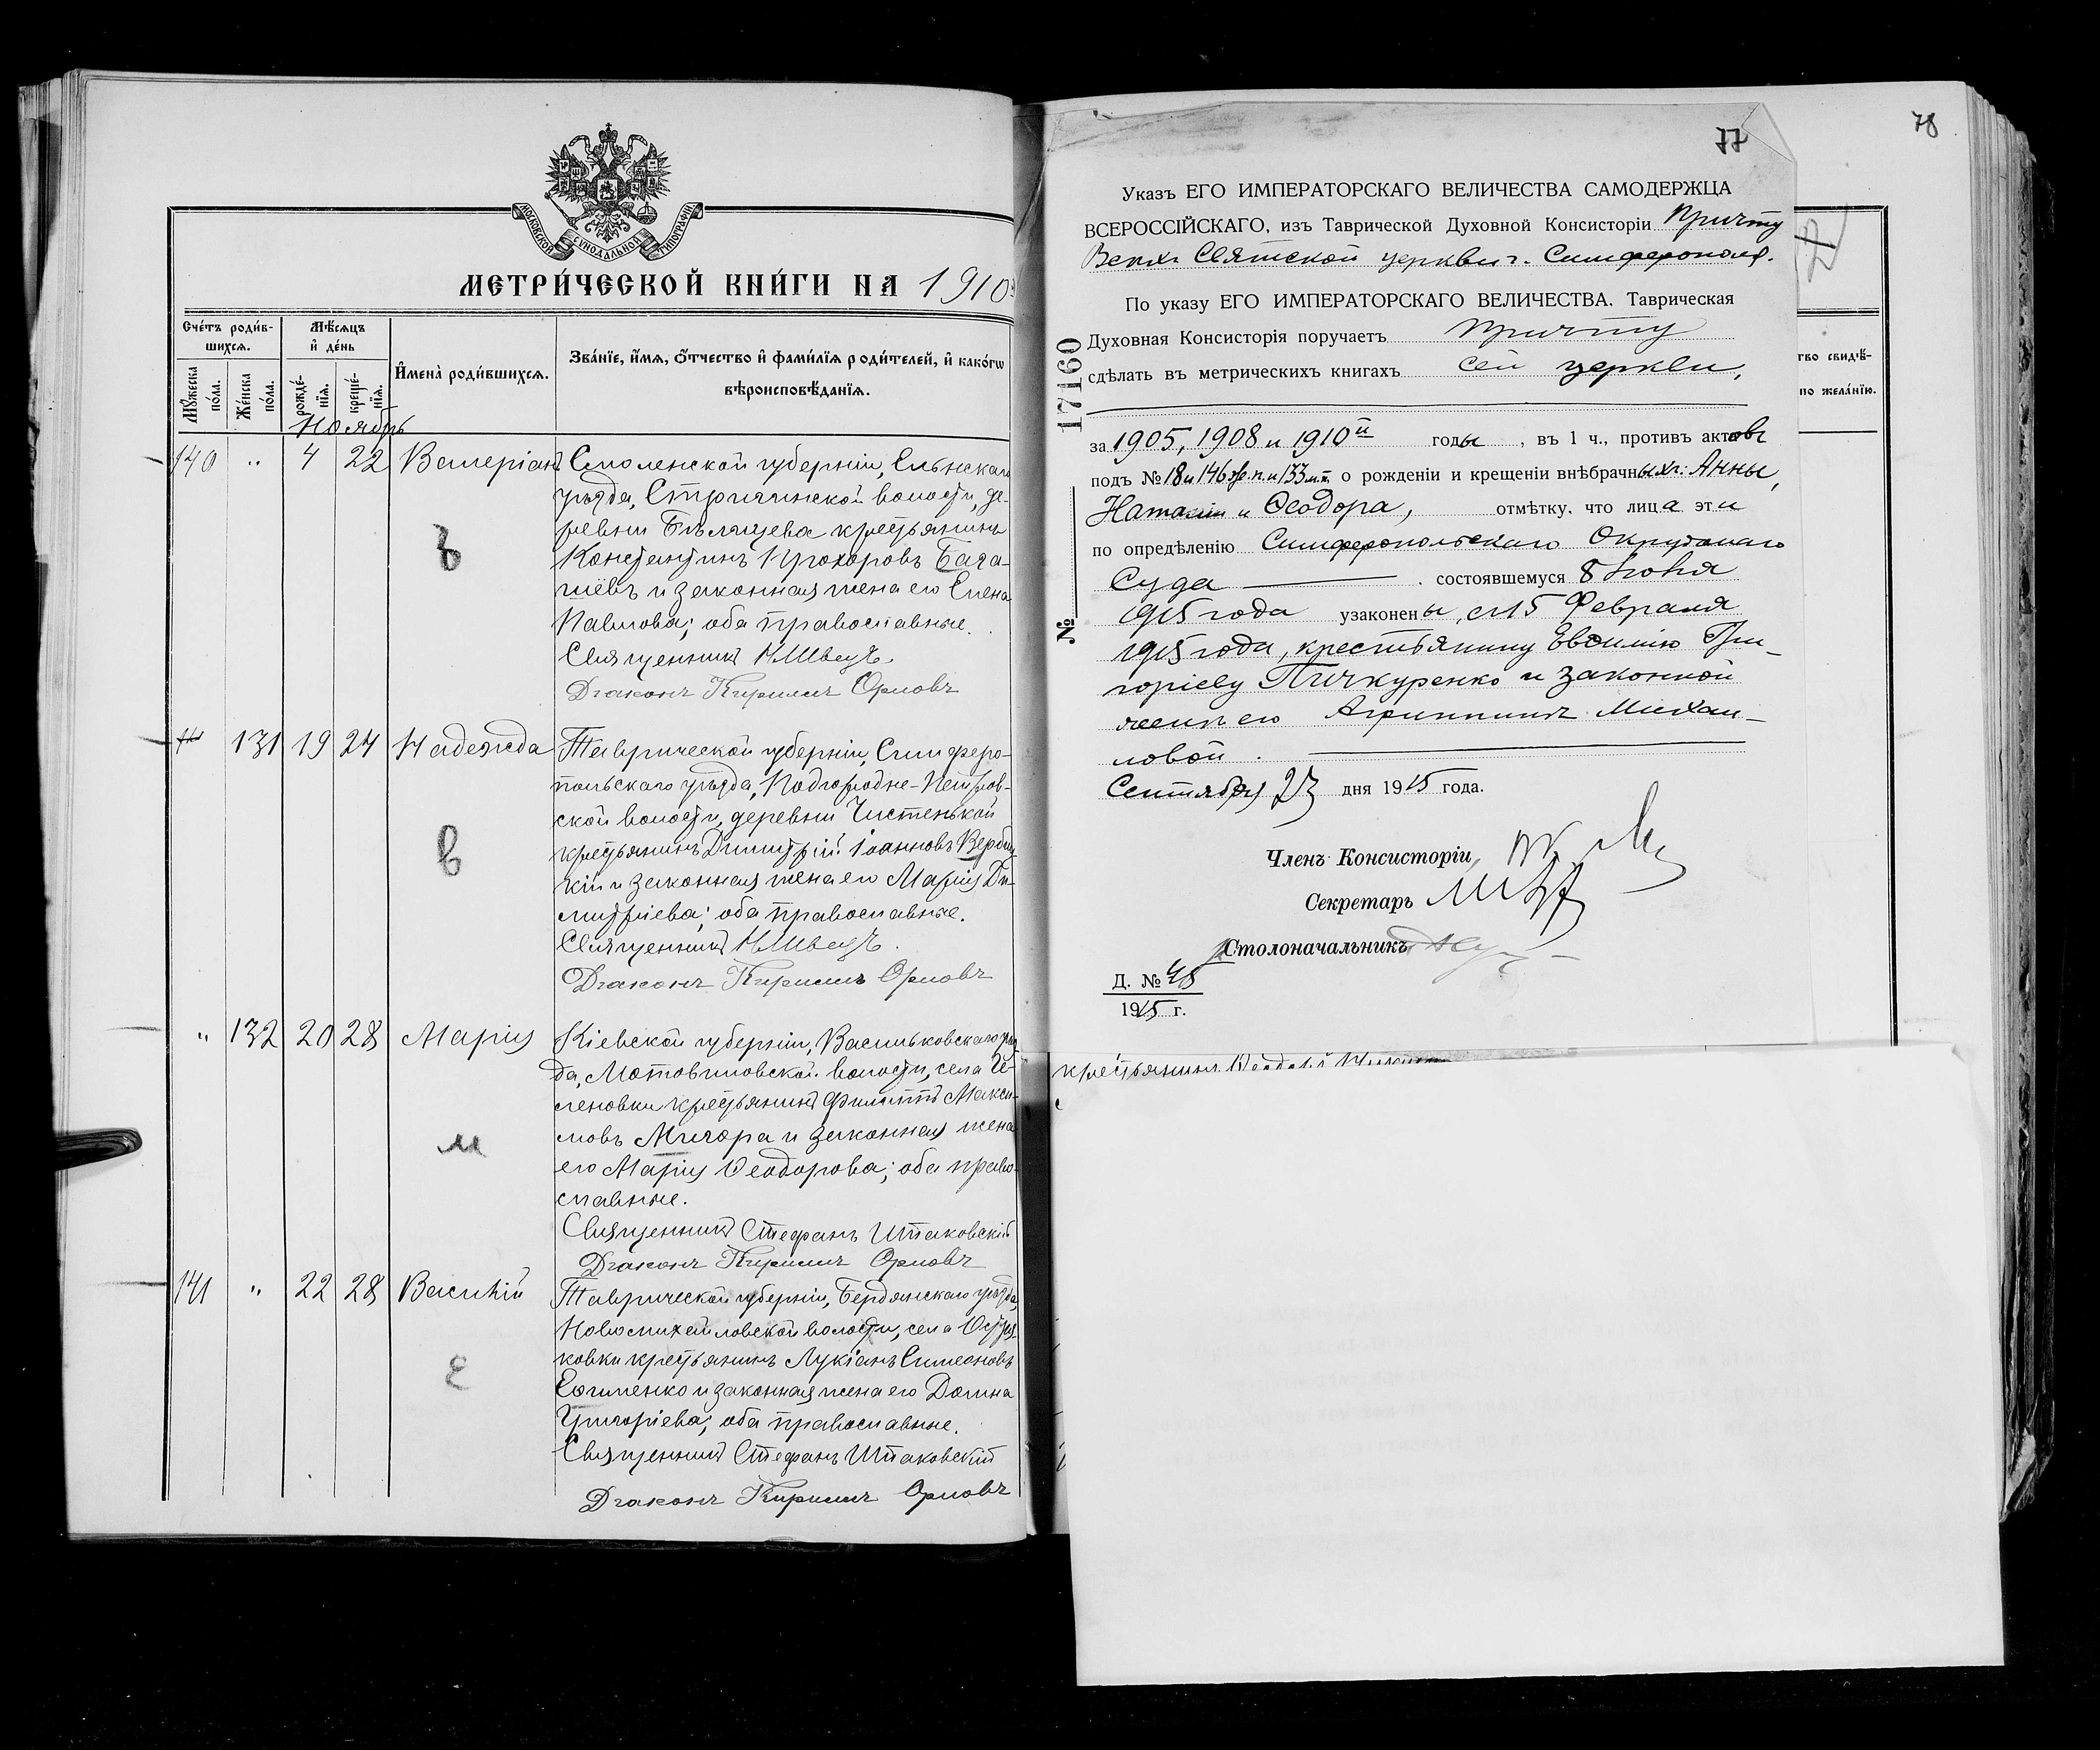 МОСКОВСКОЙ СУНОДАЛЬНОЙ ТИПОГРАФІИ
МЕТРИ́ЧЕСКОЙ КНИ́ГИ НА 1910
Сче́тъ роди́в-
шихся.
Мѣ́сяцъ
и҆ де́нь
И҆мена̀ роди́вшихся.
Зва́нїе, и҆́мя, о҆́тчество и҆ фами́лїя роди́телей, и҆ како́гѡ
вѣроисповѣ́данїя.
Мꙋ́жеска
по́ла.
Же́нска
по́ла.
рожде́-
нїя.
креще́-
нїя.
Ноябрь
140 " 4 22 Валеріанъ Смоленской губерніи, Ельнскаго
уѣзда, Стригинской волости, де-
ревни крестьянинъ
Константинъ Прохоровъ Бага-
шёвъ и законная жена его Елена
Павлова; оба православные.
Священникъ Н Швецъ
Діаконъ Кириллъ Орловъ
ъ
131 19 24 Надежда Таврической губерніи, Симферо-
польскаго уѣзда, Подгородне-Петров-
ской волости, деревни Чистенькой
крестьянинъ Димитрій Іоанновъ Вербиц-
кій и законная жена его Марія Ди-
митріева; оба православные.
Священникъ Н Швецъ.
Діаконъ Кириллъ Орловъ
в
" 132 20 28 Марія Кіевской губерніи, Васильковскаго уѣз-
да, Мотовиловской волости, села Че-
леновки крестьянинъ Филиппъ Макси-
мовъ Мигора и законная жена
его Марія Ѳеодорова; оба право-
славные.
Священникъ Стефанъ Шпаковскій
Діаконъ Кириллъ Орловъ
м
141 " 22 28 Василій Таврической губерніи, Бердянскаго уѣзда,
Новомихайловской волости, села
ковки крестьянинъ Лукіанъ Симеоновъ
и законная жена его Домна
Григоріева; оба православные.
Священникъ Стефанъ Шпаковскій
Діаконъ Кириллъ Орловъ
Е
77
78
Указъ ЕГО ИМПЕРАТОРСКАГО ВЕЛИЧЕСТВА САМОДЕРЖЦА
ВСЕРОССІЙСКАГО, изъ Таврической Духовной Консисторіи Причту
Всѣхъ Святской церкви г. Симферополя.
По указу ЕГО ИМПЕРАТОРСКАГО ВЕЛИЧЕСТВА. Таврическая
Духовная Консисторія поручаетъ Причту
сдѣлать въ метрическихъ книгахъ сей церкви,
за 1905, 1908 и 1910й годы, въ 1 ч., противъ актовъ
подъ № 18 и 146 ж.п. и 133 м.п. о рожденіи и крещеніи внѣбрачныхъ: Анны,
Наталіи и Ѳеодора, отмѣтку. что лица эти
по опредѣленію Симферопольскаго Окружнаго
Суда — . состоявшемуся 8 Іюня
1915 года узаконены, съ 15 Февраля
1915 года, крестьянину Евѳимію Гри-
горіеву Пичкуренко и законной
женѣ его Агриппинѣ Михаи-
ловой.
Сентября 23 дня 1915 года.
Членъ Консисторіи,
Секретарь
Столоначальникъ
Д. № 48
1915 г.
№ 17160
тво свидѣ-
по жела́нїю.
крестьянинъ Ѳеодоръ